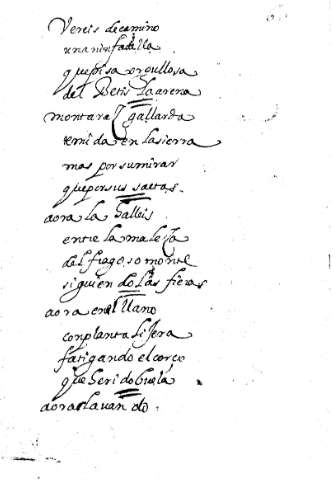 Vereis de camino
una ninfa della
que pisa orgullosa
del Betis la arena
montaraz gallarda
temida en la sierra
mas por su mirar
que por sus saetas
aora la halleis
entre la maleza
del fragoso monte
siguiendo las fieras
aora en el llano
con planta lijera
fatigando el corço
que herido buela
aora lavando